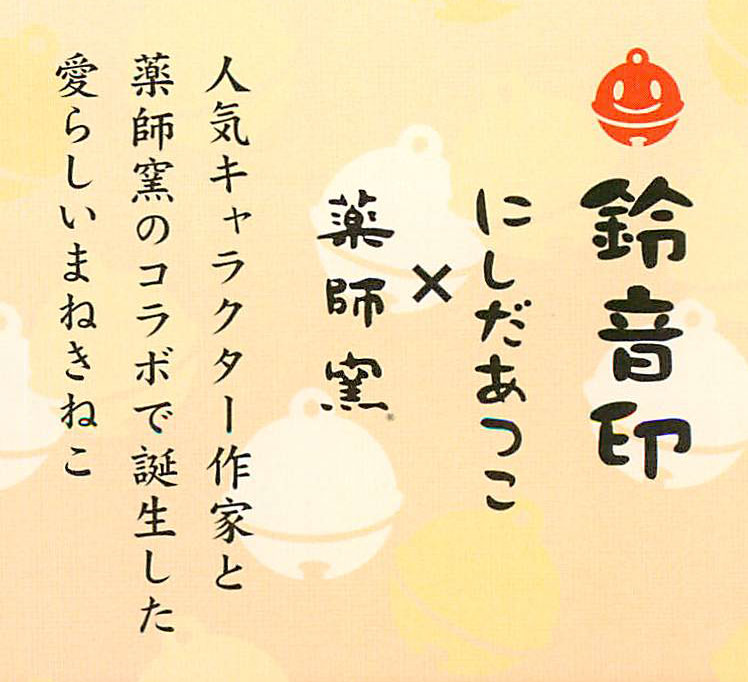 鈴音印
にしだあつこ
×
薬師窯
人気キャラクター作家と
薬師窯のコラボで誕生した
愛らしいまねきねこ